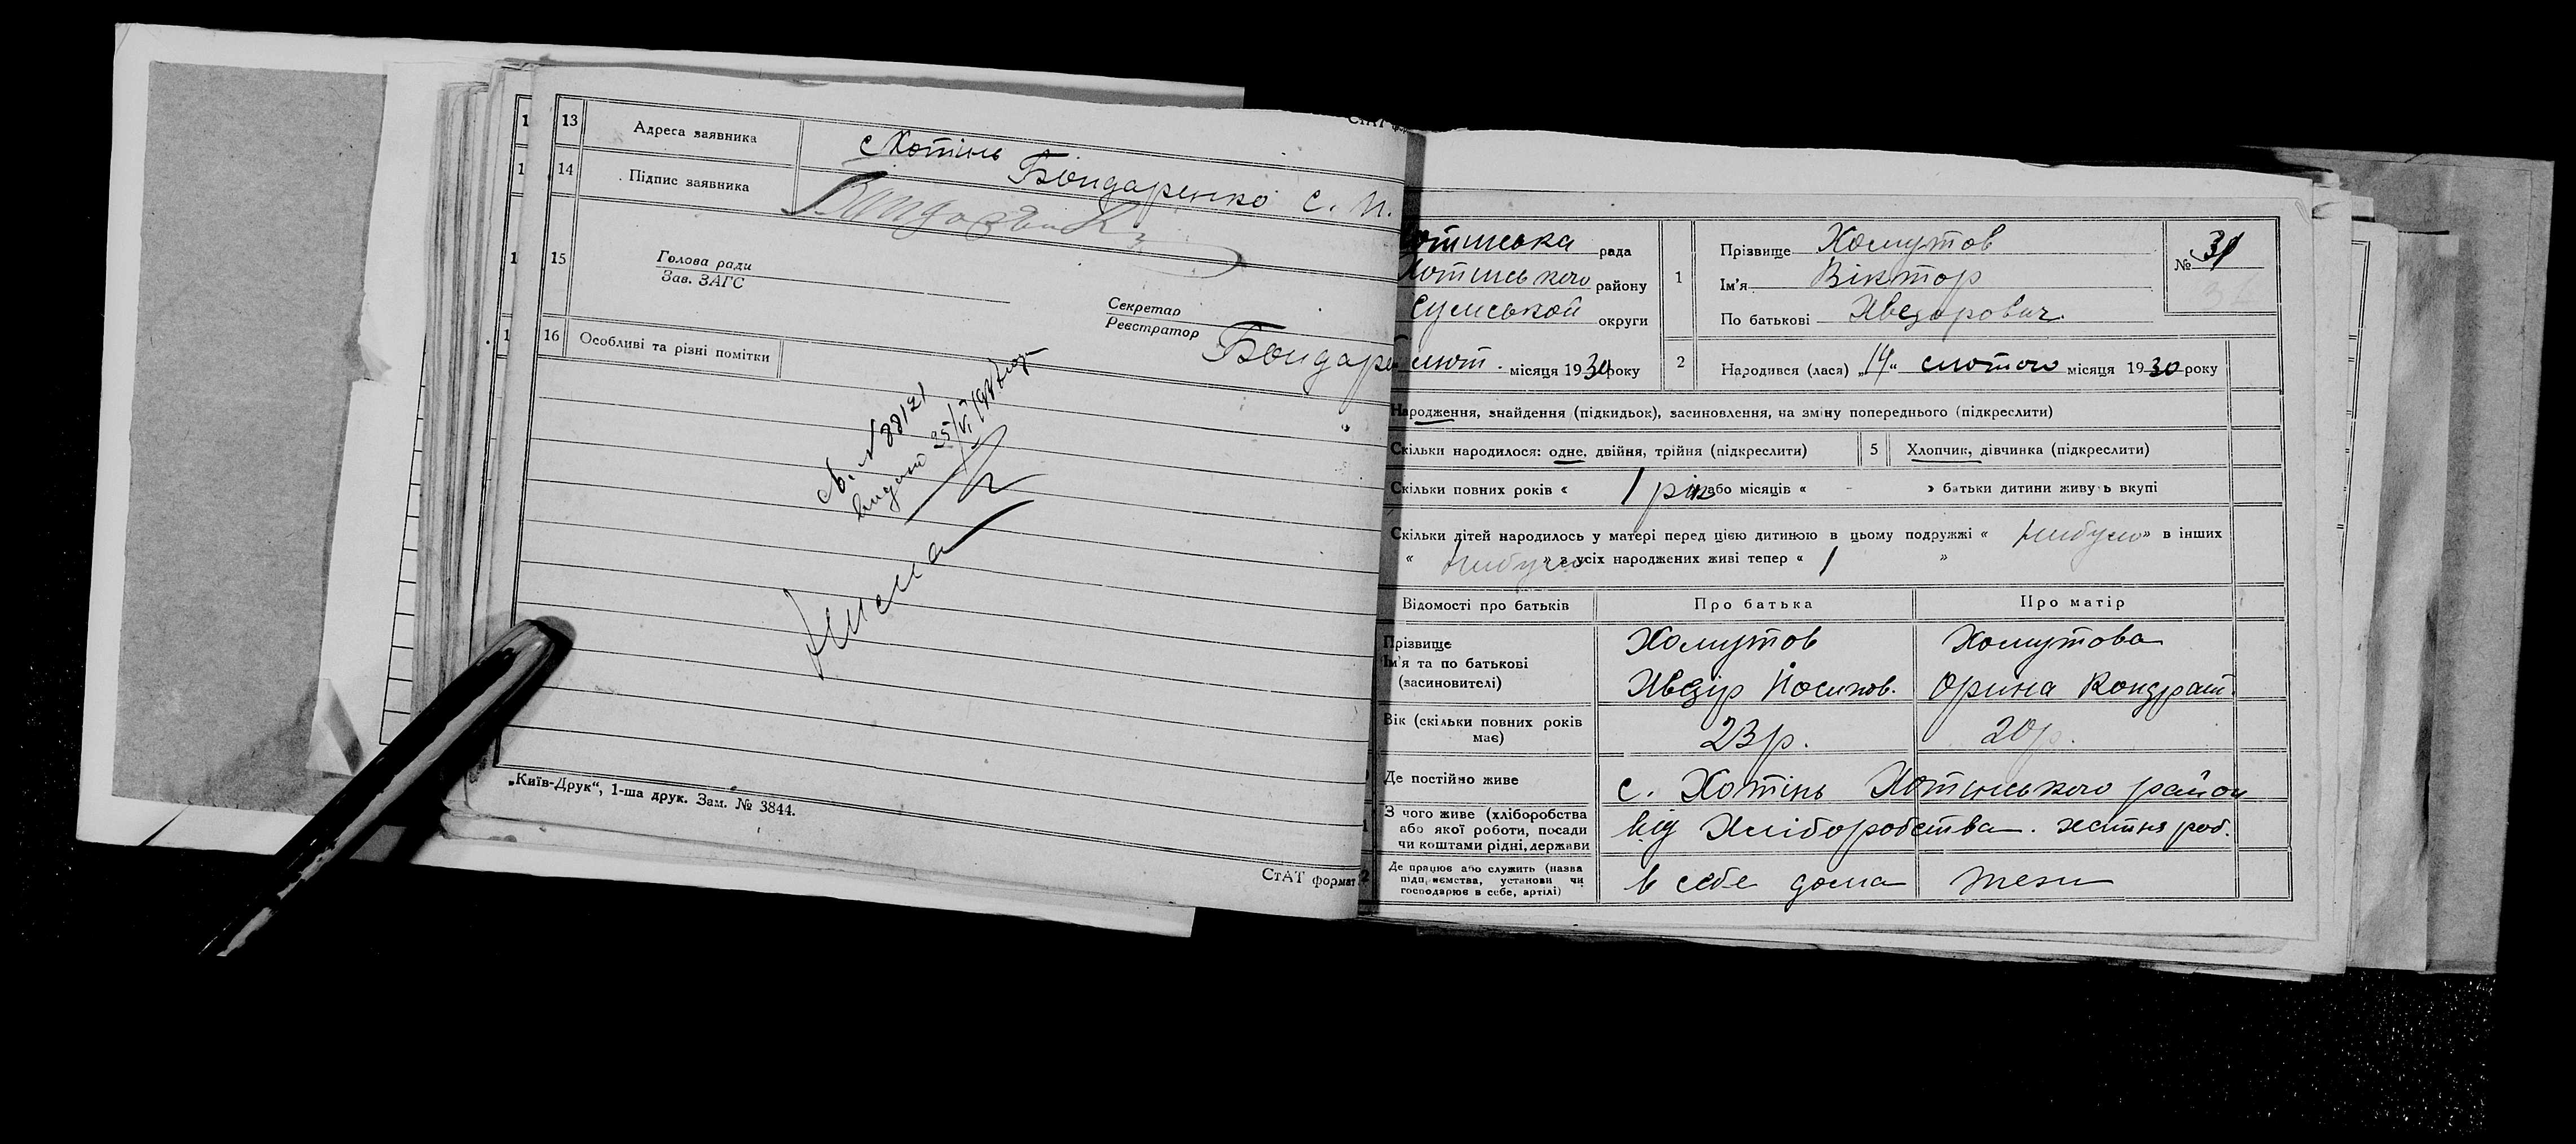 13 Адреса заявника с Хотінь
Бондаренко С. П.
14 Підпис заявника
15 Голова ради
Зав. ЗАГС
Секретар
Реєстратор
Бондаре
16 Особливі та різні помітки
видано 25/VI
„Київ-Друк“, 1-ша друк. Зам. № 3844.
СтАТ формат
отинська рада
Хотинського району
Сумської округи
лют. місяця 1930 року
1 Прізвище Хомутов
Ім'я Віктор
По батькові Хведорович
№ 31
2 Народився (лася) „14“ лютого місяця 1930 року
Народження, знайдення (підкидьок), засиновлення, на зміну попереднього (підкреслити)
Скільки народилося: одне, двійня, трійня (підкреслити) 5 Хлопчик, дівчинка (підкреслити)
Скільки повних років « 1 рік або місяців « - » батьки дитини живуть вкупі
Скільки дітей народилось у матері перед цією дитиною в цьому подружжі « небуло » в інших
« небуло » з усіх народжених живі тепер « 1 »
Відомості про батьків Про батька Про матір
Прізвище Хомутов Хомутова
Ім'я та по батькові
(засиновителі) Хведір Йосипов. Орина Кондрат.
Вік (скільки повних років
має) 23 р. 20 р.
Де постійно живе с. Хотінь Хотинського район
З чого живе (хліборобства
або якої роботи, посади
чи коштами рідні, держави від Хліборобства. хатня роб.
Де працює або служить (назва
підприємства, установи чи
господарює в себе, артілі) в себе дома теж